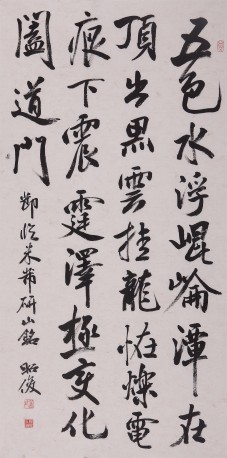 五色水浮崐崘潭在
頂出黒雲挂龍怪爍電
痕下震霆澤極変化
闔道門
節临米芾研山銘 昭俊